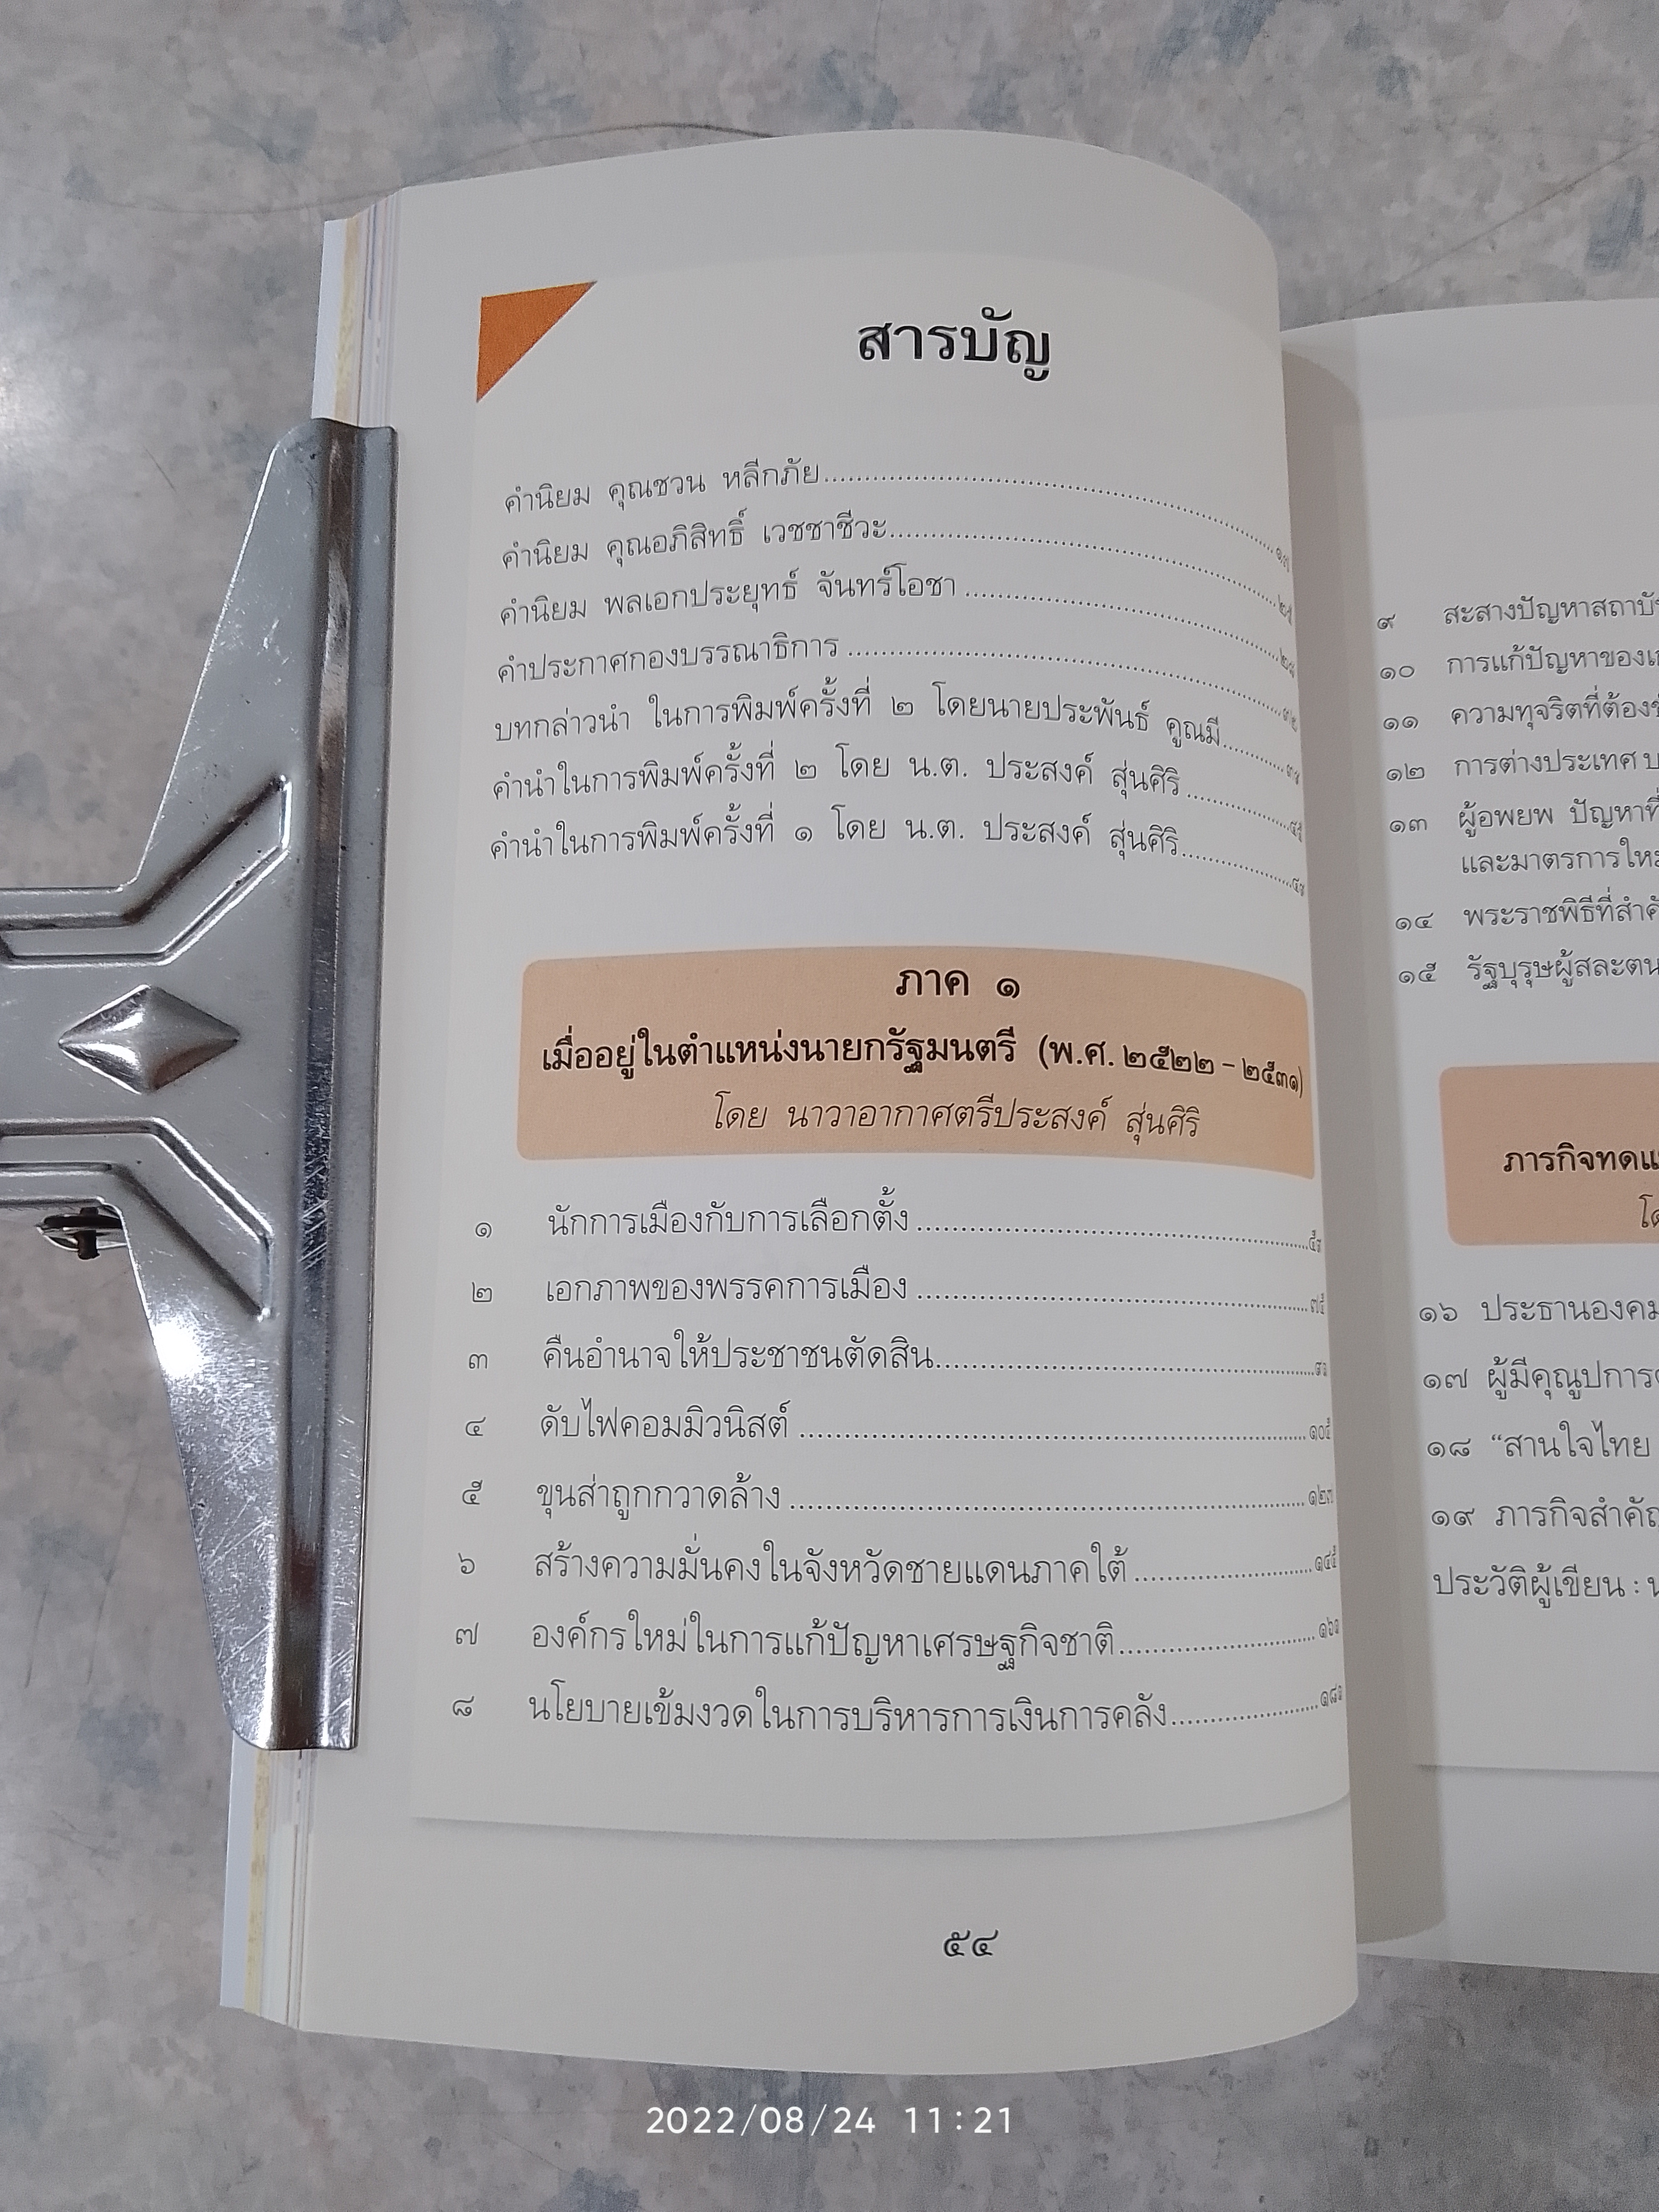 สารบัญ
คำนิยม คุณชวน หลีกภัย
คำนิยม คุณอภิสิทธิ์ เวชชาชีวะ
คำนิยม พลเอกประยุทธ์ จันทร์โอชา
คำประกาศกองบรรณาธิการ
บทกล่าวนำ ในการพิมพ์ครั้งที่ ๒ โดยนายประพันธ์ คูณมี
คำนำในการพิมพ์ครั้งที่ ๒ โดย น.ต. ประสงค์ สุ่นศิริ
คำนำในการพิมพ์ครั้งที่ ๑ โดย น.ต. ประสงค์ สุ่นศิริ
ภาค ๑
เมื่ออยู่ในตำแหน่งนายกรัฐมนตรี (พ.ศ. ๒๕๒๒ - ๒๕๓๑)
โดย นาวาอากาศตรีประสงค์ สุ่นศิริ
๑ นักการเมืองกับการเลือกตั้ง
๒ เอกภาพของพรรคการเมือง
๓ คืนอำนาจให้ประชาชนตัดสิน
๔ ดับไฟคอมมิวนิสต์
๕ ขุนส่าถูกกวาดล้าง
๖ สร้างความมั่นคงในจังหวัดชายแดนภาคใต้
๗ องค์กรใหม่ในการแก้ปัญหาเศรษฐกิจชาติ
๘ นโยบายเข้มงวดในการบริหารการเงินการคลัง
๕๔
๙ สะสางปัญหา
๑๐ การแก้ปัญหาของ
๑๑ ความทุจริตที่ต้อง
๑๒ การต่างประเทศ
๑๓ ผู้อพยพ ปัญหาที่
และมาตรการ
๑๔ พระราชพิธีที่
๑๕ รัฐบุรุษผู้สละ
ภารกิจ
๑๖ ประธาน
๑๗ ผู้มี
๑๘ “สานใจไทย
๑๙ ภารกิจ
ประวัติผู้เขียน :
2022/08/24 11:21